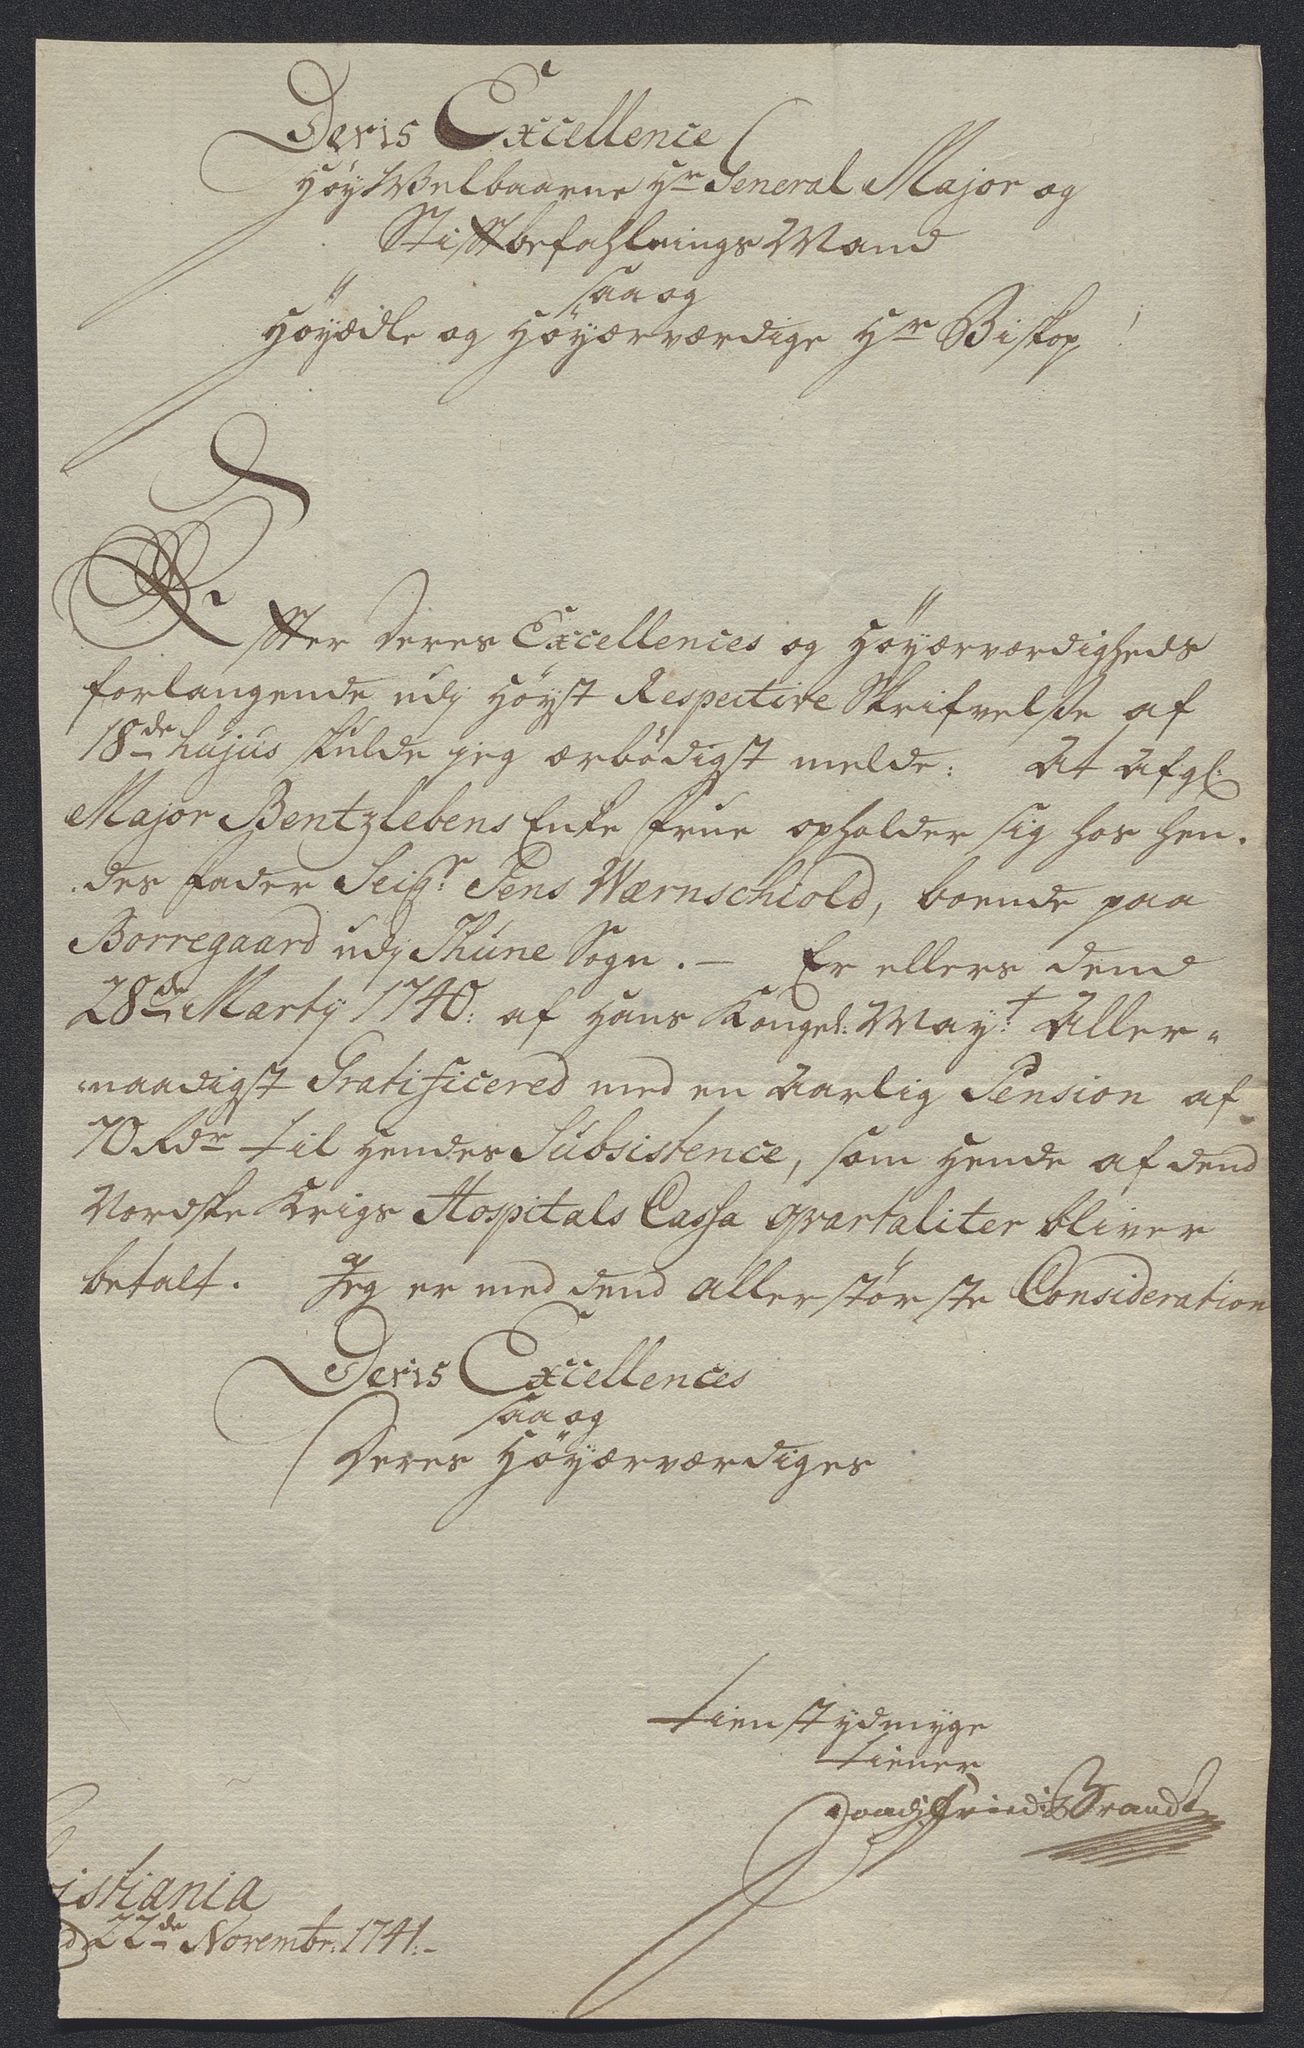 Deris Excellence
HøyWelbaarne Hr General Major og
Stiftbefahlnings Mand
saa og
Høyædle og Høyærværdige Hr Biskop
Effter Deres Excellences og Høyærværdigheds
forlangende udj Høyst Respective Skrifvelse af
18de hujus skulde jeg ærbødigst melde: At Afgl:
Major Bentzlebens Enke Frue opholder sig hos hen-
des Fader Seigr. Jens Wærnschiold, boende paa
Borregaard udj Thune Sogn. — Er ellers dend
28de Marty 1740: af Hans Kongel: Mayt: Aller-
naadigst Gratificered med en Aarlig Pension af
70 Rdr til Hendes Subsistence, som Hende af dend
Nordske Krigs Hospitals Cassa qvartaliter bliver
betalt. Jeg er med dend allerstørste Consideration
Deris Excellences
saa og
Deres Høyærværdiges
tienstydmyge
tiener
Joach Friedr Brandt
istiania
d 22de Novembr: 1741.-